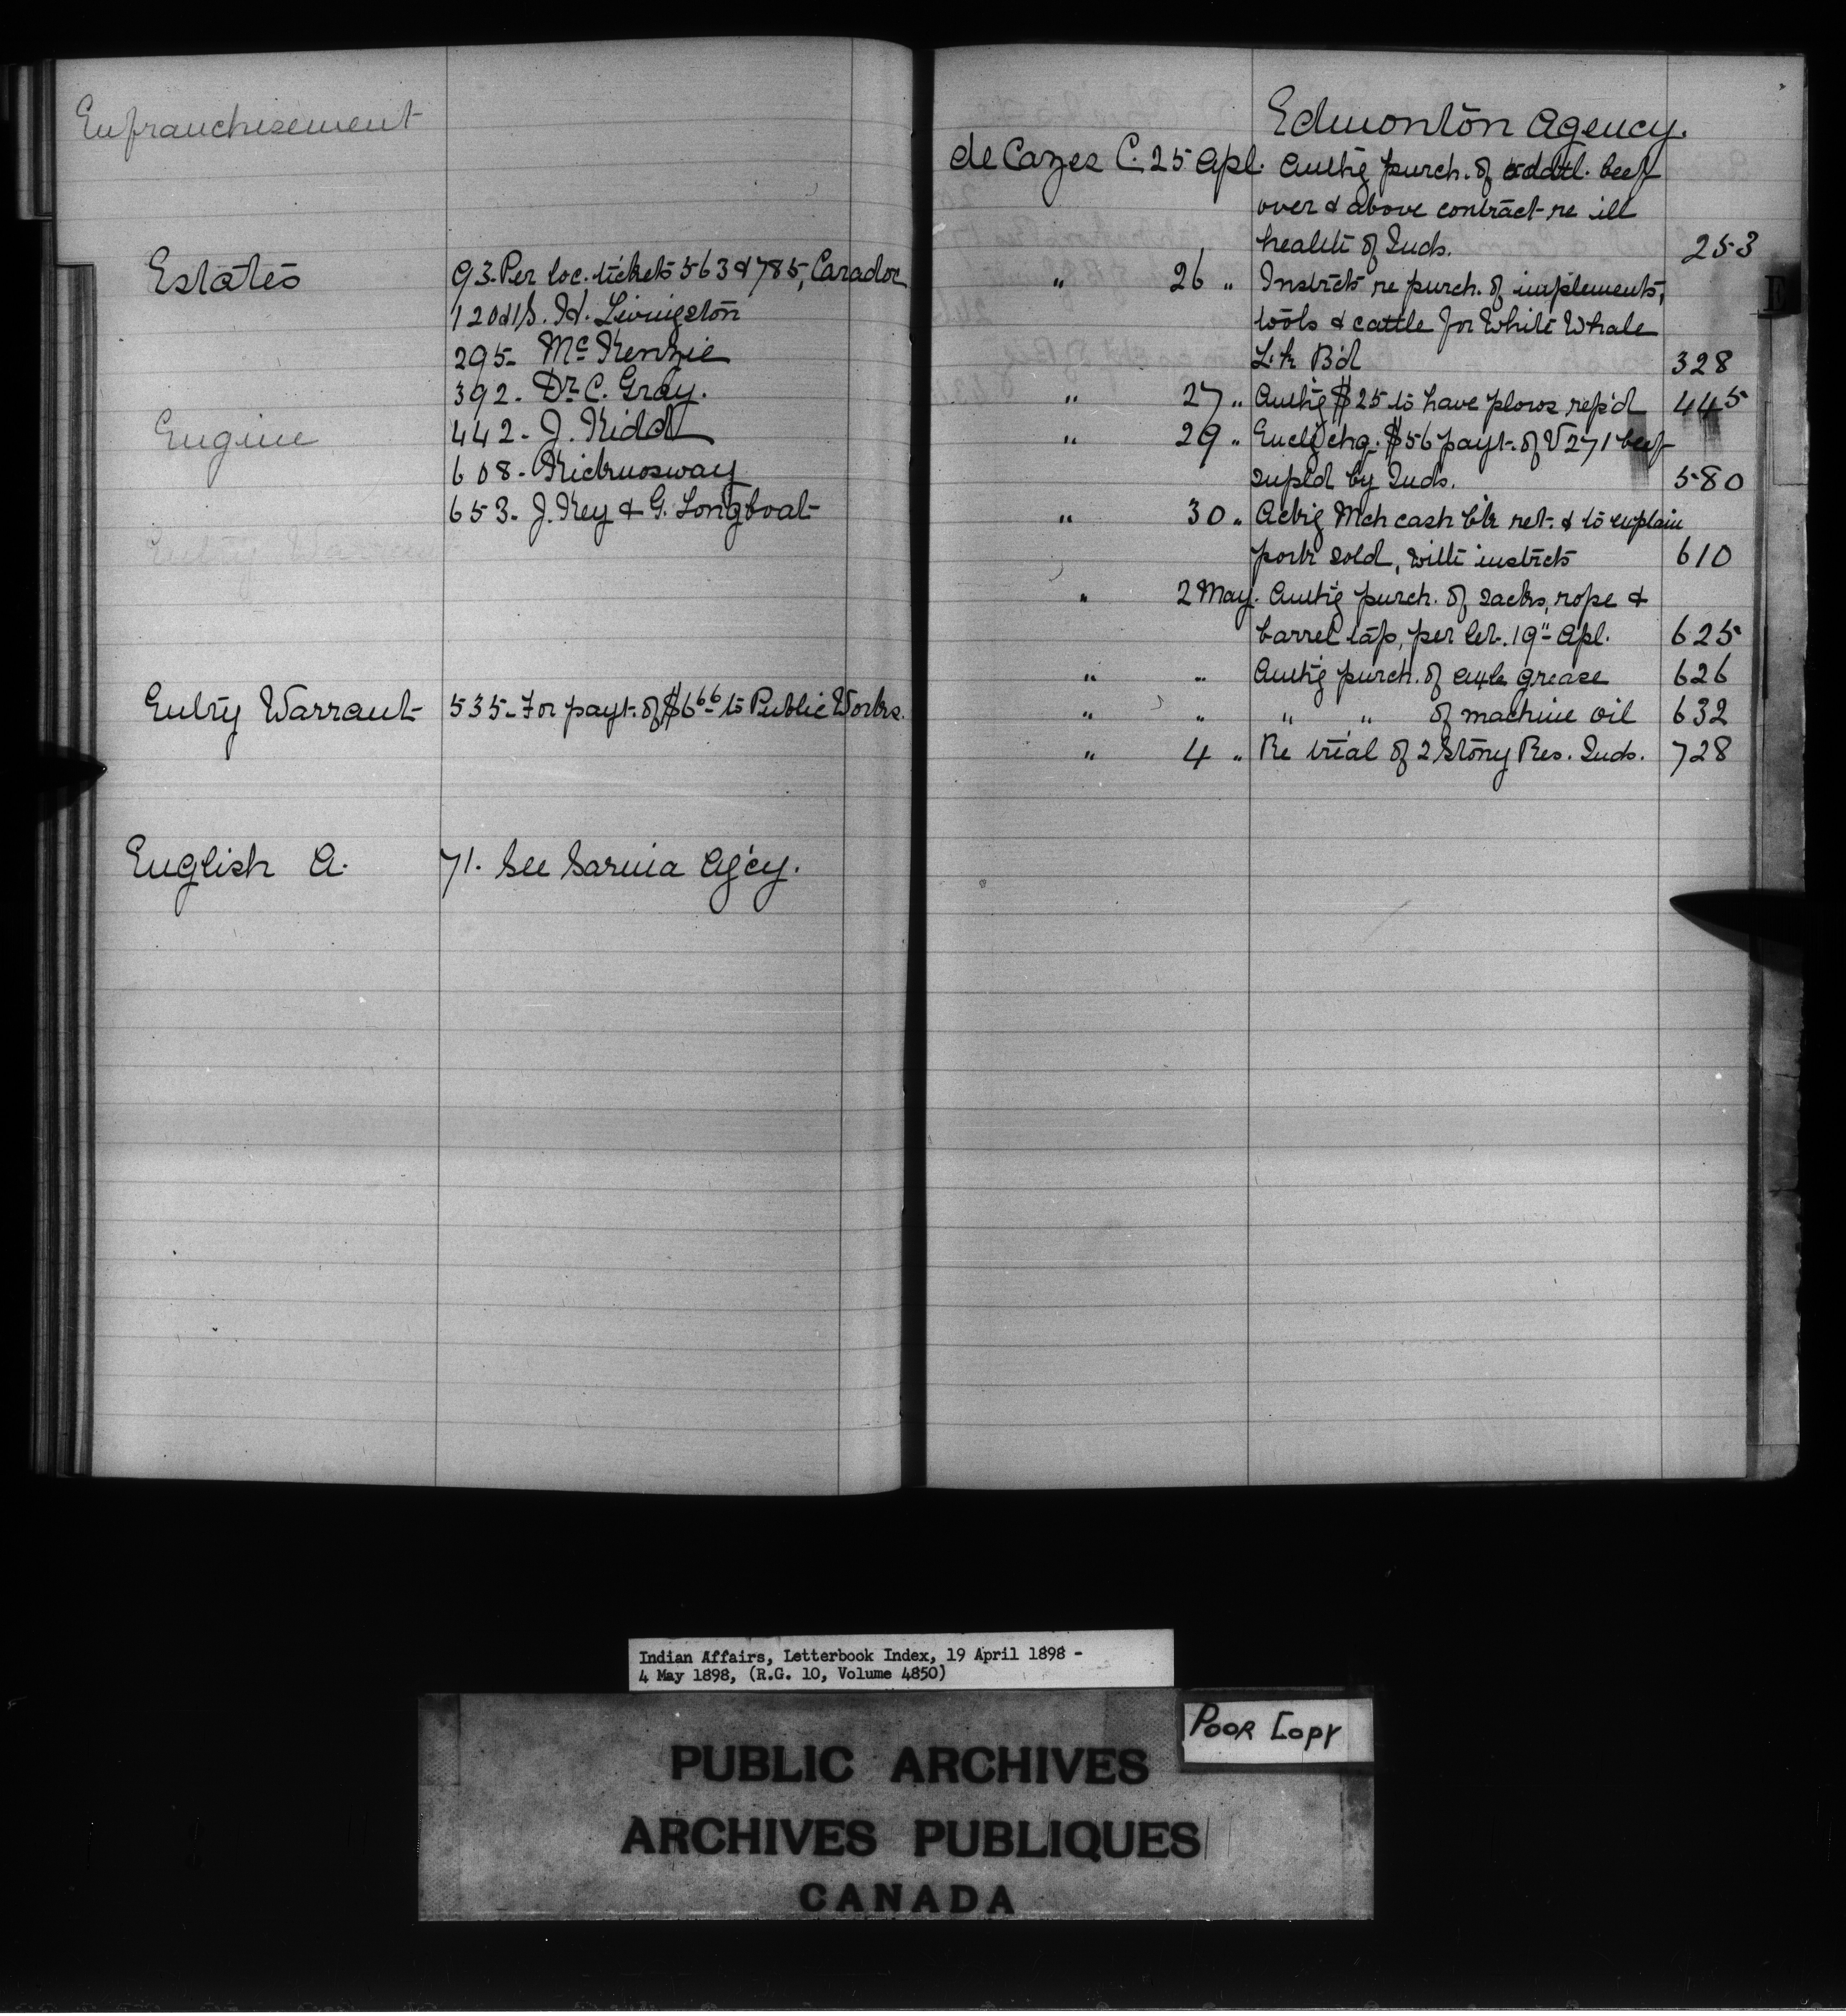 Enfranchisement
Estates
93. Per loc. tickets 563 & 785, Caradoc
120 H. Livingston
295 - Mc Kenzie
392 - Dr C. Gray.
Engine
442 - J. Kidd
608 - Kicknosway
653 - J. Key & G. Longboat
Entry Warrant
Entry Warrant
535 - For payt. of $6 66 to Public Works.
English A.
71. See Sarnia Ag'cy.
Edmonton Agency.
de Cazes C. 25 Apl. Authg purch. of addtl. beef
over & above contract re ill
health of Inds. 253
" 26 " Instrcts re purch. of implements,
tools & cattle for White Whale
Lk B'd 328
" 27 " Authg $25 to have plows rep'd 445
" 29 " Encl'g chq. $56 payt. of V 271 beef
supl'd by Inds. 580
" 30 " Ackg Mch cash bk ret. & to explain
pork sold, with instrcts 610
" 2 May. Authg purch. of sacks, rope &
barrel tap, per let. 19" Apl. 625
" " Authg purch. of axle grease 626
" " " " of machine oil 632
" 4 " Re trial of 2 Stony Res. Inds. 728
E
Indian Affairs, Letterbook Index, 19 April 1898 -
4 May 1898, (R.G. 10, Volume 4850)
POOR COPY
PUBLIC ARCHIVES
ARCHIVES PUBLIQUES
CANADA